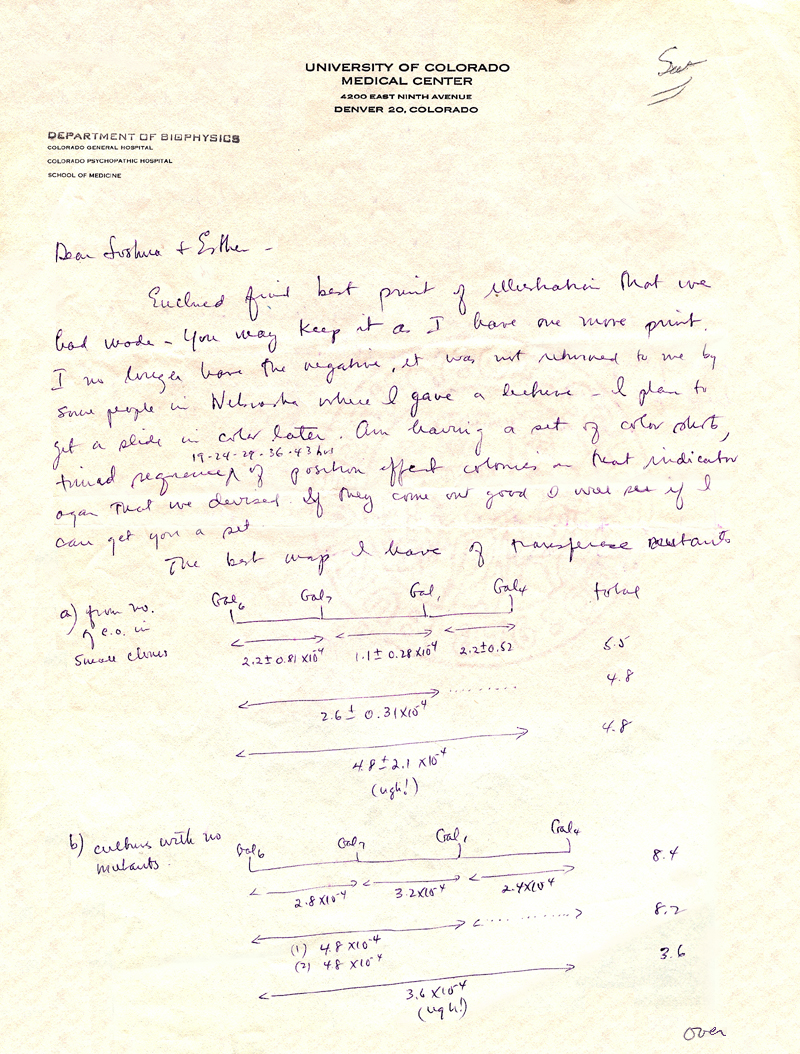 UNIVERSITY OF COLORADO
MEDICAL CENTER
4200 EAST NINTH AVENUE
DENVER 20, COLORADO
DEPARTMENT OF BIOPHYSICS
COLORADO GENERAL HOSPITAL
COLORADO PSYCHOPATHIC HOSPITAL
SCHOOL OF MEDICINE
Dear Joshua + Esther -
Enclosed find best print of illustration that we
had made - You may keep it as I have one more print.
I no longer have the negative, it was not returned to me by
some people in Nebraska where I gave a lecture - I plan to
get a slide in color later. Am having a set of color shots,
19-24-29-36-43 hrs
timed sequence of position effect colonies on that indicator
agar that we devised. If they come out good I will see if I
can get you a set.
The best map I have of transferase mutants
a) from no. of c.o. in small clones
Gal6 Gal7 Gal1 Gal4 total
2.2 ± 0.81 X10-4 1.1 ± 0.28 X10-4 2.2 ± 0.52 5.5
2.6 ± 0.31 X10-4 4.8
4.8 ± 2.1 X10-4 4.8
(ugh!)
b) cultures with no mutants.
Gal6 Gal7 Gal1 Gal4
2.8 X10-4 3.2 X10-4 2.4 X10-4 8.4
(1) 4.8 X10-4 8.2
(2) 4.8 X10-4
3.6 X10-4 3.6
(ugh!)
over